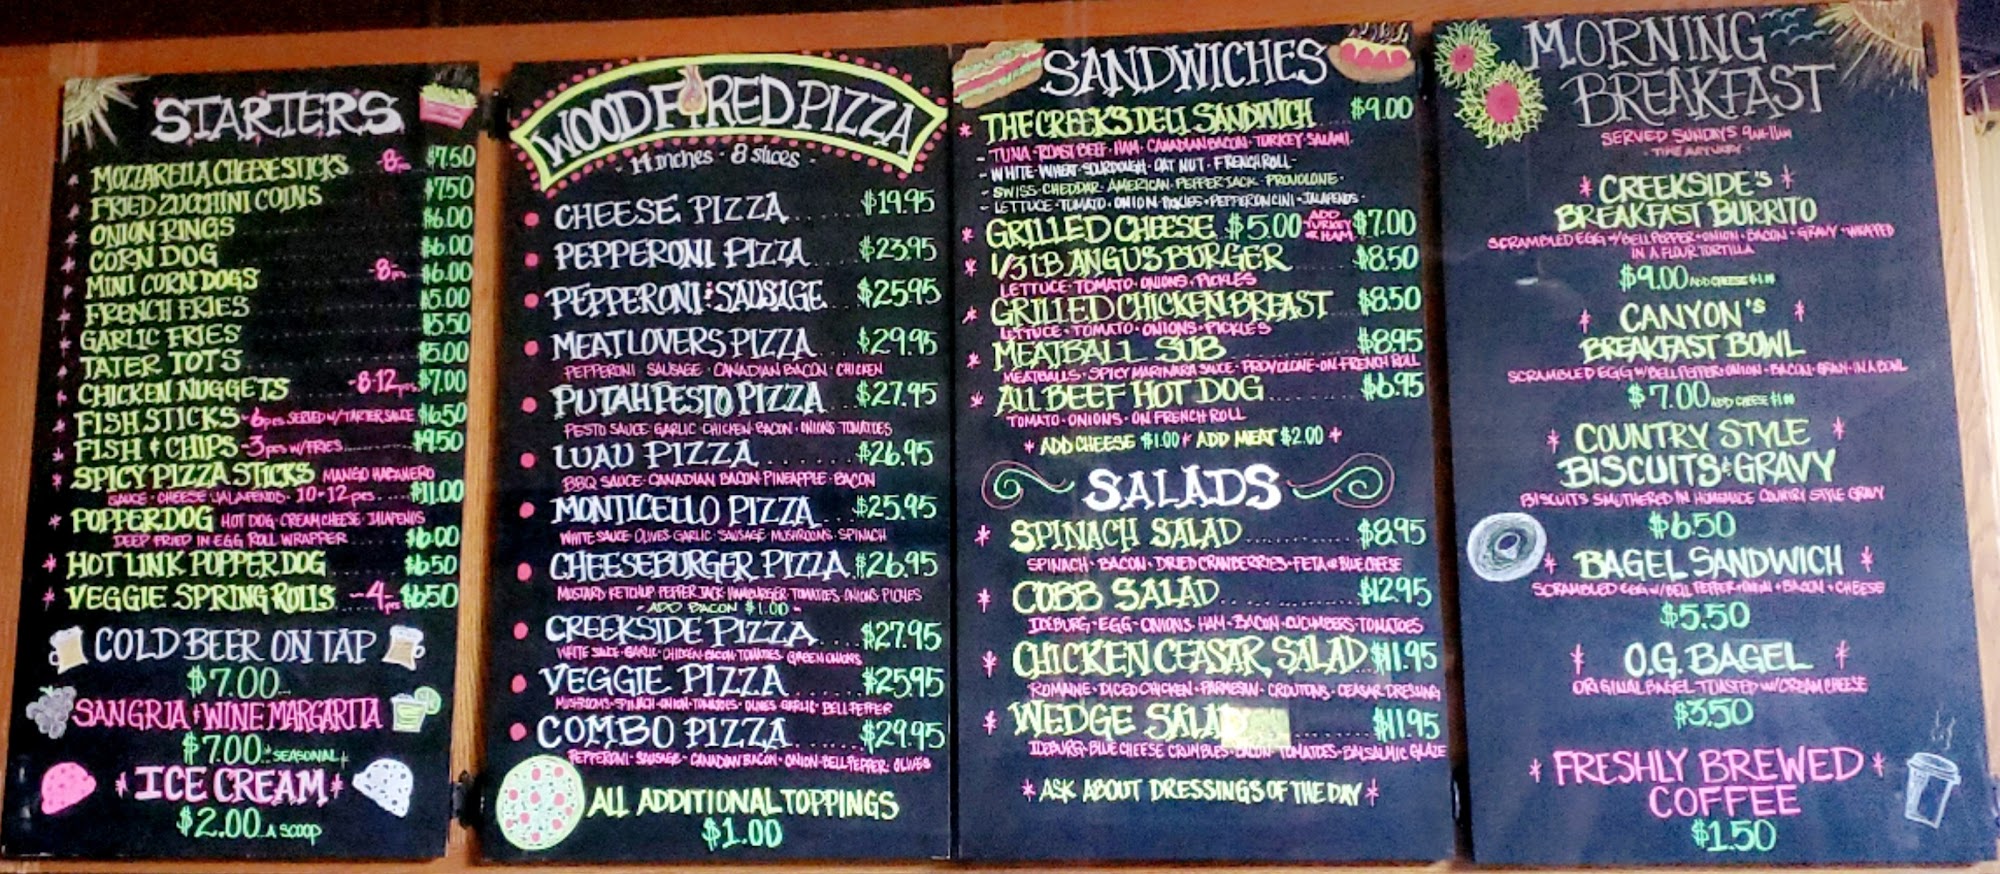 STARTERS
MOZZARELLA CHEESE STICKS -8pcs $7.50
FRIED ZUCCHINI COINS $7.50
ONION RINGS $6.00
CORN DOG $6.00
MINI CORN DOGS -8pcs $6.00
FRENCH FRIES $5.00
GARLIC FRIES $5.50
TATER TOTS $5.00
CHICKEN NUGGETS -8-12pcs $7.00
FISH STICKS -6pcs SERVED W/TARTER SAUCE $6.50
FISH & CHIPS -3pcs W/FRIES $9.50
SPICY PIZZA STICKS MANGO HABANERO
SAUCE · CHEESE JALAPENOS · 10-12 pcs. $11.00
POPPER DOG HOT DOG · CREAM CHEESE · JALAPENOS
DEEP FRIED IN EGG ROLL WRAPPER $6.00
HOT LINK POPPER DOG $6.50
VEGGIE SPRING ROLLS -4-pcs $6.50
COLD BEER ON TAP
$7.00
SANGRIA & WINE MARGARITA
$7.00 * SEASONAL *
* ICE CREAM *
$2.00 A SCOOP
WOOD FIRED PIZZA
14 inches · 8 slices
CHEESE PIZZA $19.95
PEPPERONI PIZZA $23.95
PEPPERONI & SAUSAGE $25.95
MEATLOVERS PIZZA $29.95
PEPPERONI SAUSAGE · CANADIAN BACON · CHICKEN
PUTAH PESTO PIZZA $27.95
PESTO SAUCE · GARLIC CHICKEN · BACON · ONIONS TOMATOES
LUAU PIZZA $26.95
BBQ SAUCE · CANADIAN BACON · PINEAPPLE · BACON
MONTICELLO PIZZA $25.95
WHITE SAUCE · OLIVES · GARLIC · SAUSAGE · MUSHROOMS · SPINACH
CHEESEBURGER PIZZA $26.95
MUSTARD KETCHUP · PEPPER JACK · HAMBURGER · TOMATOES · ONIONS PICKLES
- ADD BACON $1.00 -
CREEKSIDE PIZZA $27.95
WHITE SAUCE · GARLIC · CHICKEN · BACON · TOMATOES · GREEN ONIONS
VEGGIE PIZZA $25.95
MUSHROOMS · SPINACH · ONION · TOMATOES · OLIVES · GARLIC · BELL PEPPER
COMBO PIZZA $29.95
PEPPERONI · SAUSAGE · CANADIAN BACON · ONION · BELL PEPPER · OLIVES
ALL ADDITIONAL TOPPINGS
$1.00
SANDWICHES
* THE CREEK'S DELI SANDWICH $9.00
- TUNA · ROAST BEEF · HAM · CANADIAN BACON · TURKEY · SALAMI
- WHITE · WHEAT · SOURDOUGH · OAT NUT · FRENCH ROLL -
- SWISS · CHEDDAR · AMERICAN · PEPPER JACK · PROVOLONE ·
- LETTUCE · TOMATO · ONION · PICKLES · PEPPERONCINI · JALAPENOS ·
* GRILLED CHEESE $5.00 ADD TURKEY or HAM $7.00
* 1/3 LB ANGUS BURGER $8.50
LETTUCE · TOMATO · ONIONS · PICKLES
* GRILLED CHICKEN BREAST $8.50
LETTUCE · TOMATO · ONIONS · PICKLES
* MEATBALL SUB $8.95
MEATBALLS · SPICY MARINARA SAUCE · PROVOLONE · ON · FRENCH ROLL
* ALL BEEF HOT DOG $6.95
TOMATO · ONIONS · ON FRENCH ROLL
* ADD CHEESE $1.00 * ADD MEAT $2.00 *
SALADS
* SPINACH SALAD $8.95
SPINACH · BACON · DRIED CRANBERRIES · FETA or BLUE CHEESE
* COBB SALAD $12.95
ICEBURG · EGG · ONIONS · HAM · BACON · CUCUMBERS · TOMATOES
* CHICKEN CEASAR SALAD $11.95
ROMAINE · DICED CHICKEN · PARMESAN · CROUTONS · CEASAR DRESSING
* WEDGE SALAD $11.95
ICEBURG · BLUE CHEESE CRUMBLES · BACON · TOMATOES · BALSALMIC GLAZE
* ASK ABOUT DRESSINGS OF THE DAY *
MORNING
BREAKFAST
SERVED SUNDAYS 9am-11am
* CREEKSIDE'S *
BREAKFAST BURRITO
SCRAMBLED EGG W/BELL PEPPER · ONION · BACON · GRAVY · WRAPPED
IN A FLOUR TORTILLA
$9.00 ADD CHEESE $1.00
* CANYON'S *
BREAKFAST BOWL
SCRAMBLED EGG W/BELL PEPPER · ONION · BACON · GRAVY · IN A BOWL
$7.00 ADD CHEESE $1.00
* COUNTRY STYLE *
BISCUITS & GRAVY
BISCUITS SMOTHERED IN HOMEMADE COUNTRY STYLE GRAVY
$6.50
* BAGEL SANDWICH *
SCRAMBLED EGG W/BELL PEPPER · ONION · BACON · CHEESE
$5.50
* O.G. BAGEL *
ORIGINAL BAGEL TOASTED W/CREAM CHEESE
$3.50
* FRESHLY BREWED *
COFFEE
$1.50